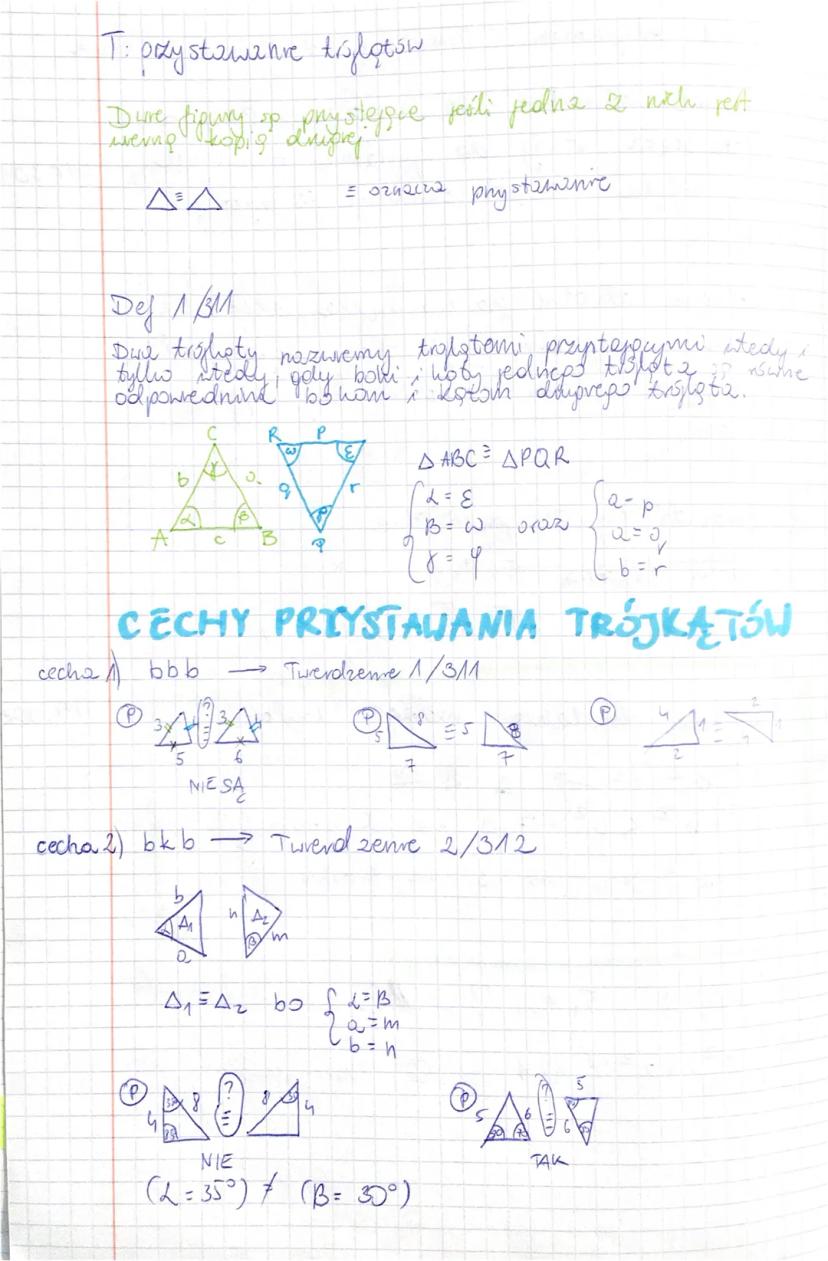 T: przystawanie trójkątów
Dwie figury są przystające jeśli jedna z nich jest
wierną kopią drugiej
△≡△ ≡ oznacza przystawanie
Def 1/311
Dwa trójkąty nazwiemy trójkątami przystającymi wtedy i
tylko wtedy, gdy boki i kąty jednego trójkąta są równe
odpowiednim bokom i kątom drugiego trójkąta.
C R P
b γ a ω ε
q r
α β φ
A c B P
△ABC ≡ △PQR
α = ε a = p
β = ω oraz a = q
γ = φ b = r
CECHY PRZYSTAWANIA TRÓJKĄTÓW
cecha 1) bbb → Twierdzenie 1/311
P 3 4 ? ≡ 3 4 P 5 8 ≡ 5 8 P 4 1 ≡ 2 1
5 6 7 7 2
NIE SĄ
cecha 2) bkb → Twierdzenie 2/312
b △1 a n △2 β m
△1 ≡ △2 bo α = β
a = m
b = n
P 4 8 ? ≡ 8 4 P 5 6 ? ≡ 5 6
NIE TAK
(α = 35°) ≠ (β = 30°)